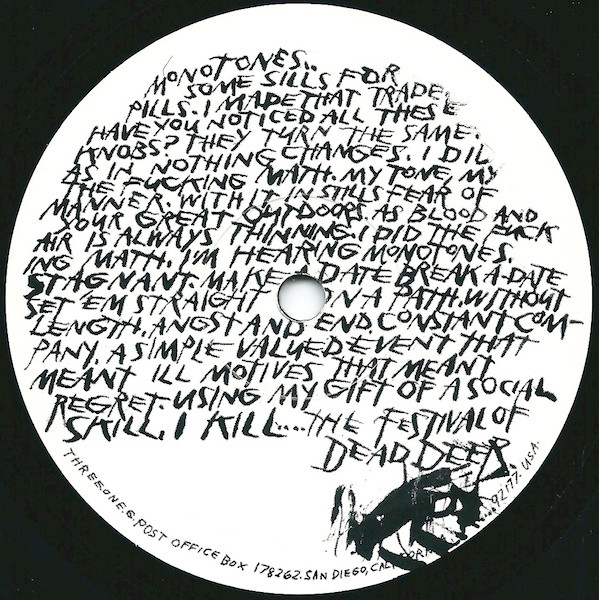 MONOTONES..
SOME SILLS FOR
PILLS. I MADE THAT TRADE.
HAVE YOU NOTICED ALL THESE
KNOBS? THEY TURN THE SAME.
AS IN NOTHING CHANGES. I DIL
THE FUCKING MATH. MY TONE, MY
MANNER. WITH IT IN STILLS FEAR OF
YOUR GREAT OUTDOORS. AS BLOOD AND
AIR IS ALWAYS THINNING. I DID THE FUCK
ING MATH. I'M HEARING MONOTONES.
STAGNANT. MAKE A DATE BREAK A DATE
SET 'EM STRAIGHT ON A PATH. WITHOUT
LENGTH. ANGST AND END. CONSTANT COM-
PANY. A SIMPLE VALUED EVENT THAT
MEANT ILL MOTIVES THAT MEANT
REGRET. USING MY GIFT OF A SOCIAL
SKILL. I KILL.....THE FESTIVAL OF
DEAD DEER.
THREE.ONE.G. POST OFFICE BOX 178262. SAN DIEGO, CALIFORNIA 92177. U.S.A.